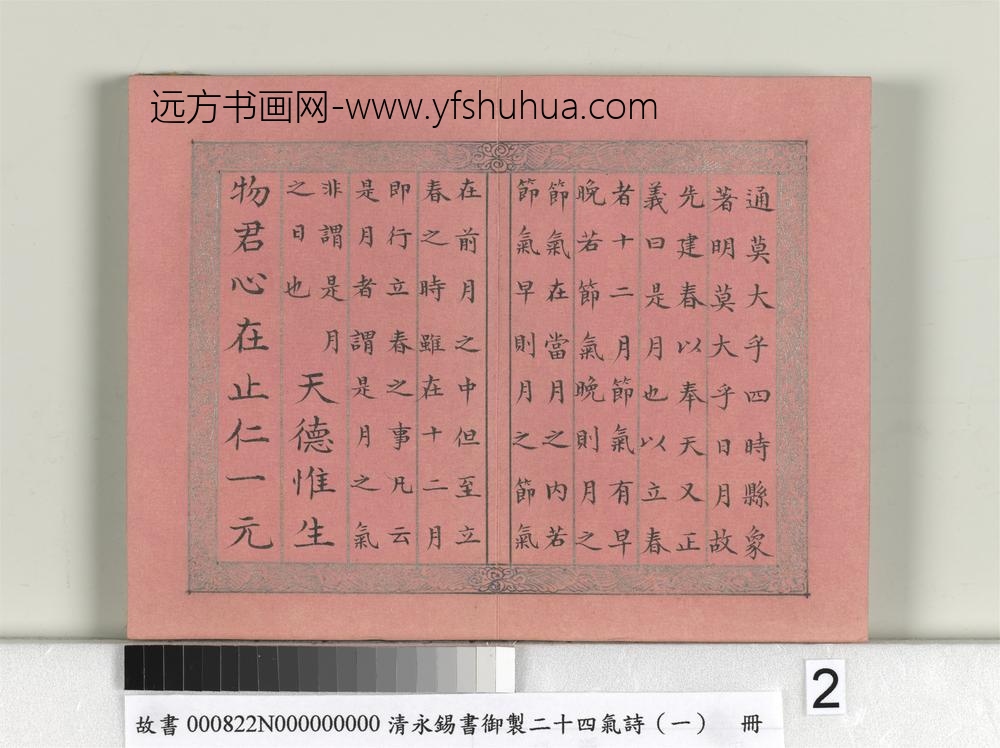 远方书画网-www.yfshuhua.com
通莫大乎四時縣象
著明莫大乎日月故
先建春以奉天又正
義曰是月也以立春
者十二月節氣有早
晚若節氣晚則月之
節氣在當月之内若
節氣早則月之節氣
在前月之中但至立
春之時雖在十二月
即行立春之事凡云
是月者謂是月之氣
非謂是月
之日也
天德惟生
物君心在止仁一元
2
故書 000822N000000000 清永錫書御製二十四氣詩（一） 冊